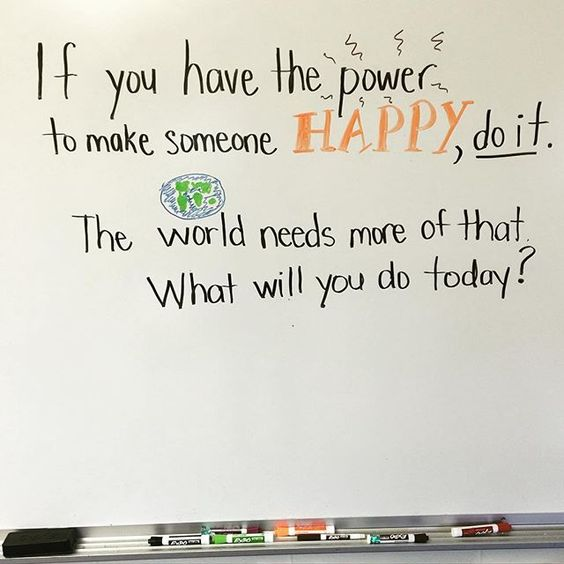 If you have the power
to make someone HAPPY, do it.
The world needs more of that.
What will you do today?
EXPO
EXPO
EXPO